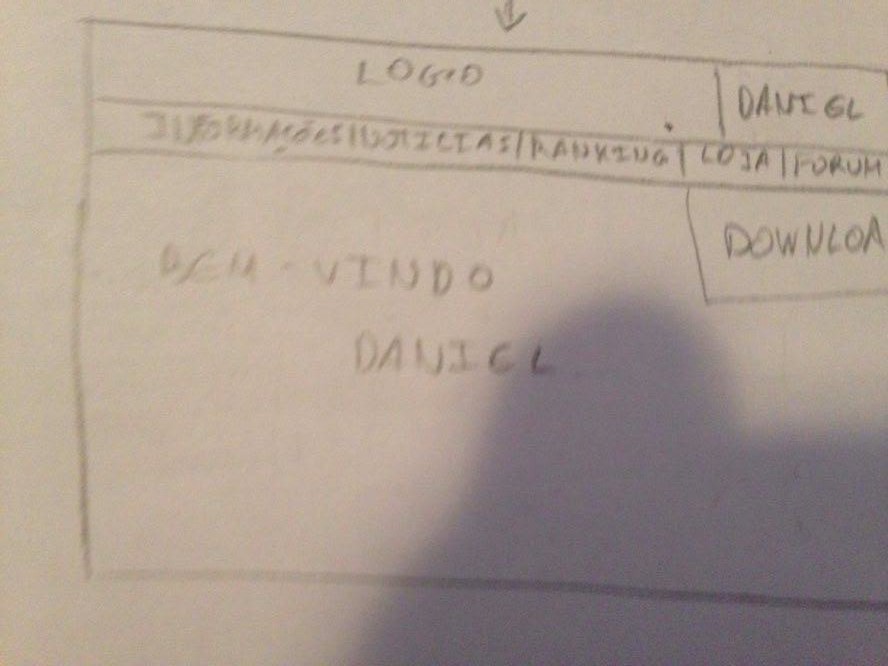 LOGO
DANIEL
INFORMAÇÕES|NOTICIAS|RANKING|LOJA|FORUM
DOWNLOA
BEM-VINDO
DANIEL